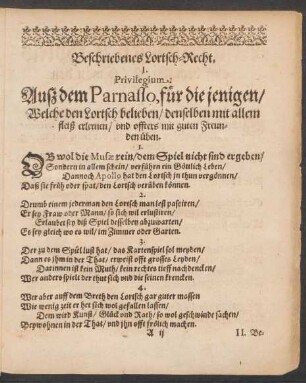 Beschriebenes Lortsch-Recht.
I.
Privilegium.
Auß dem Parnasso, für die jenigen/
Welche den Lortsch belieben/ denselben mit allem
fleiß erlernen/ vnd offters mit guten Freun-
den üben.
1.
OB wol die Musæ rein/ dem Spiel nicht sind ergeben/
Sondern in allem schein/ verführen ein Göttlich Leben/
Dannoch Apollo hat den Lortsch zu thun vergönnen/
Daß sie früh oder spat/ den Lortsch verüben können.
2.
Drumb einem jederman den Lortsch man lest passiren/
Er sey Fraw oder Mann/ so sich wil erlustiren/
Erlaubet sey diß Spiel desselben abzuwarten/
Es sey gleich wo es wil/ im Zimmer oder Garten.
3.
Der zu dem Spül lust hat/ das Kartenspiel sol meyden/
Dann es ihm in der That/ erweist offt grosses Leyden/
Darinnen ist kein Muth/ kein rechtes tieff nachdencken/
Wer anders spielt der thut sich vnd die seinen krencken.
4.
Wer aber auff dem Breth den Lortsch gar guter massen
Wie wenig zeit er hat sich wol gefallen lassen/
Dem wird Kunst/ Glück vnd Rath/ so wol geschwinde sachen/
Beywohnen in der That/ vnd jhn offt frölich machen.
A ij
II. Be-